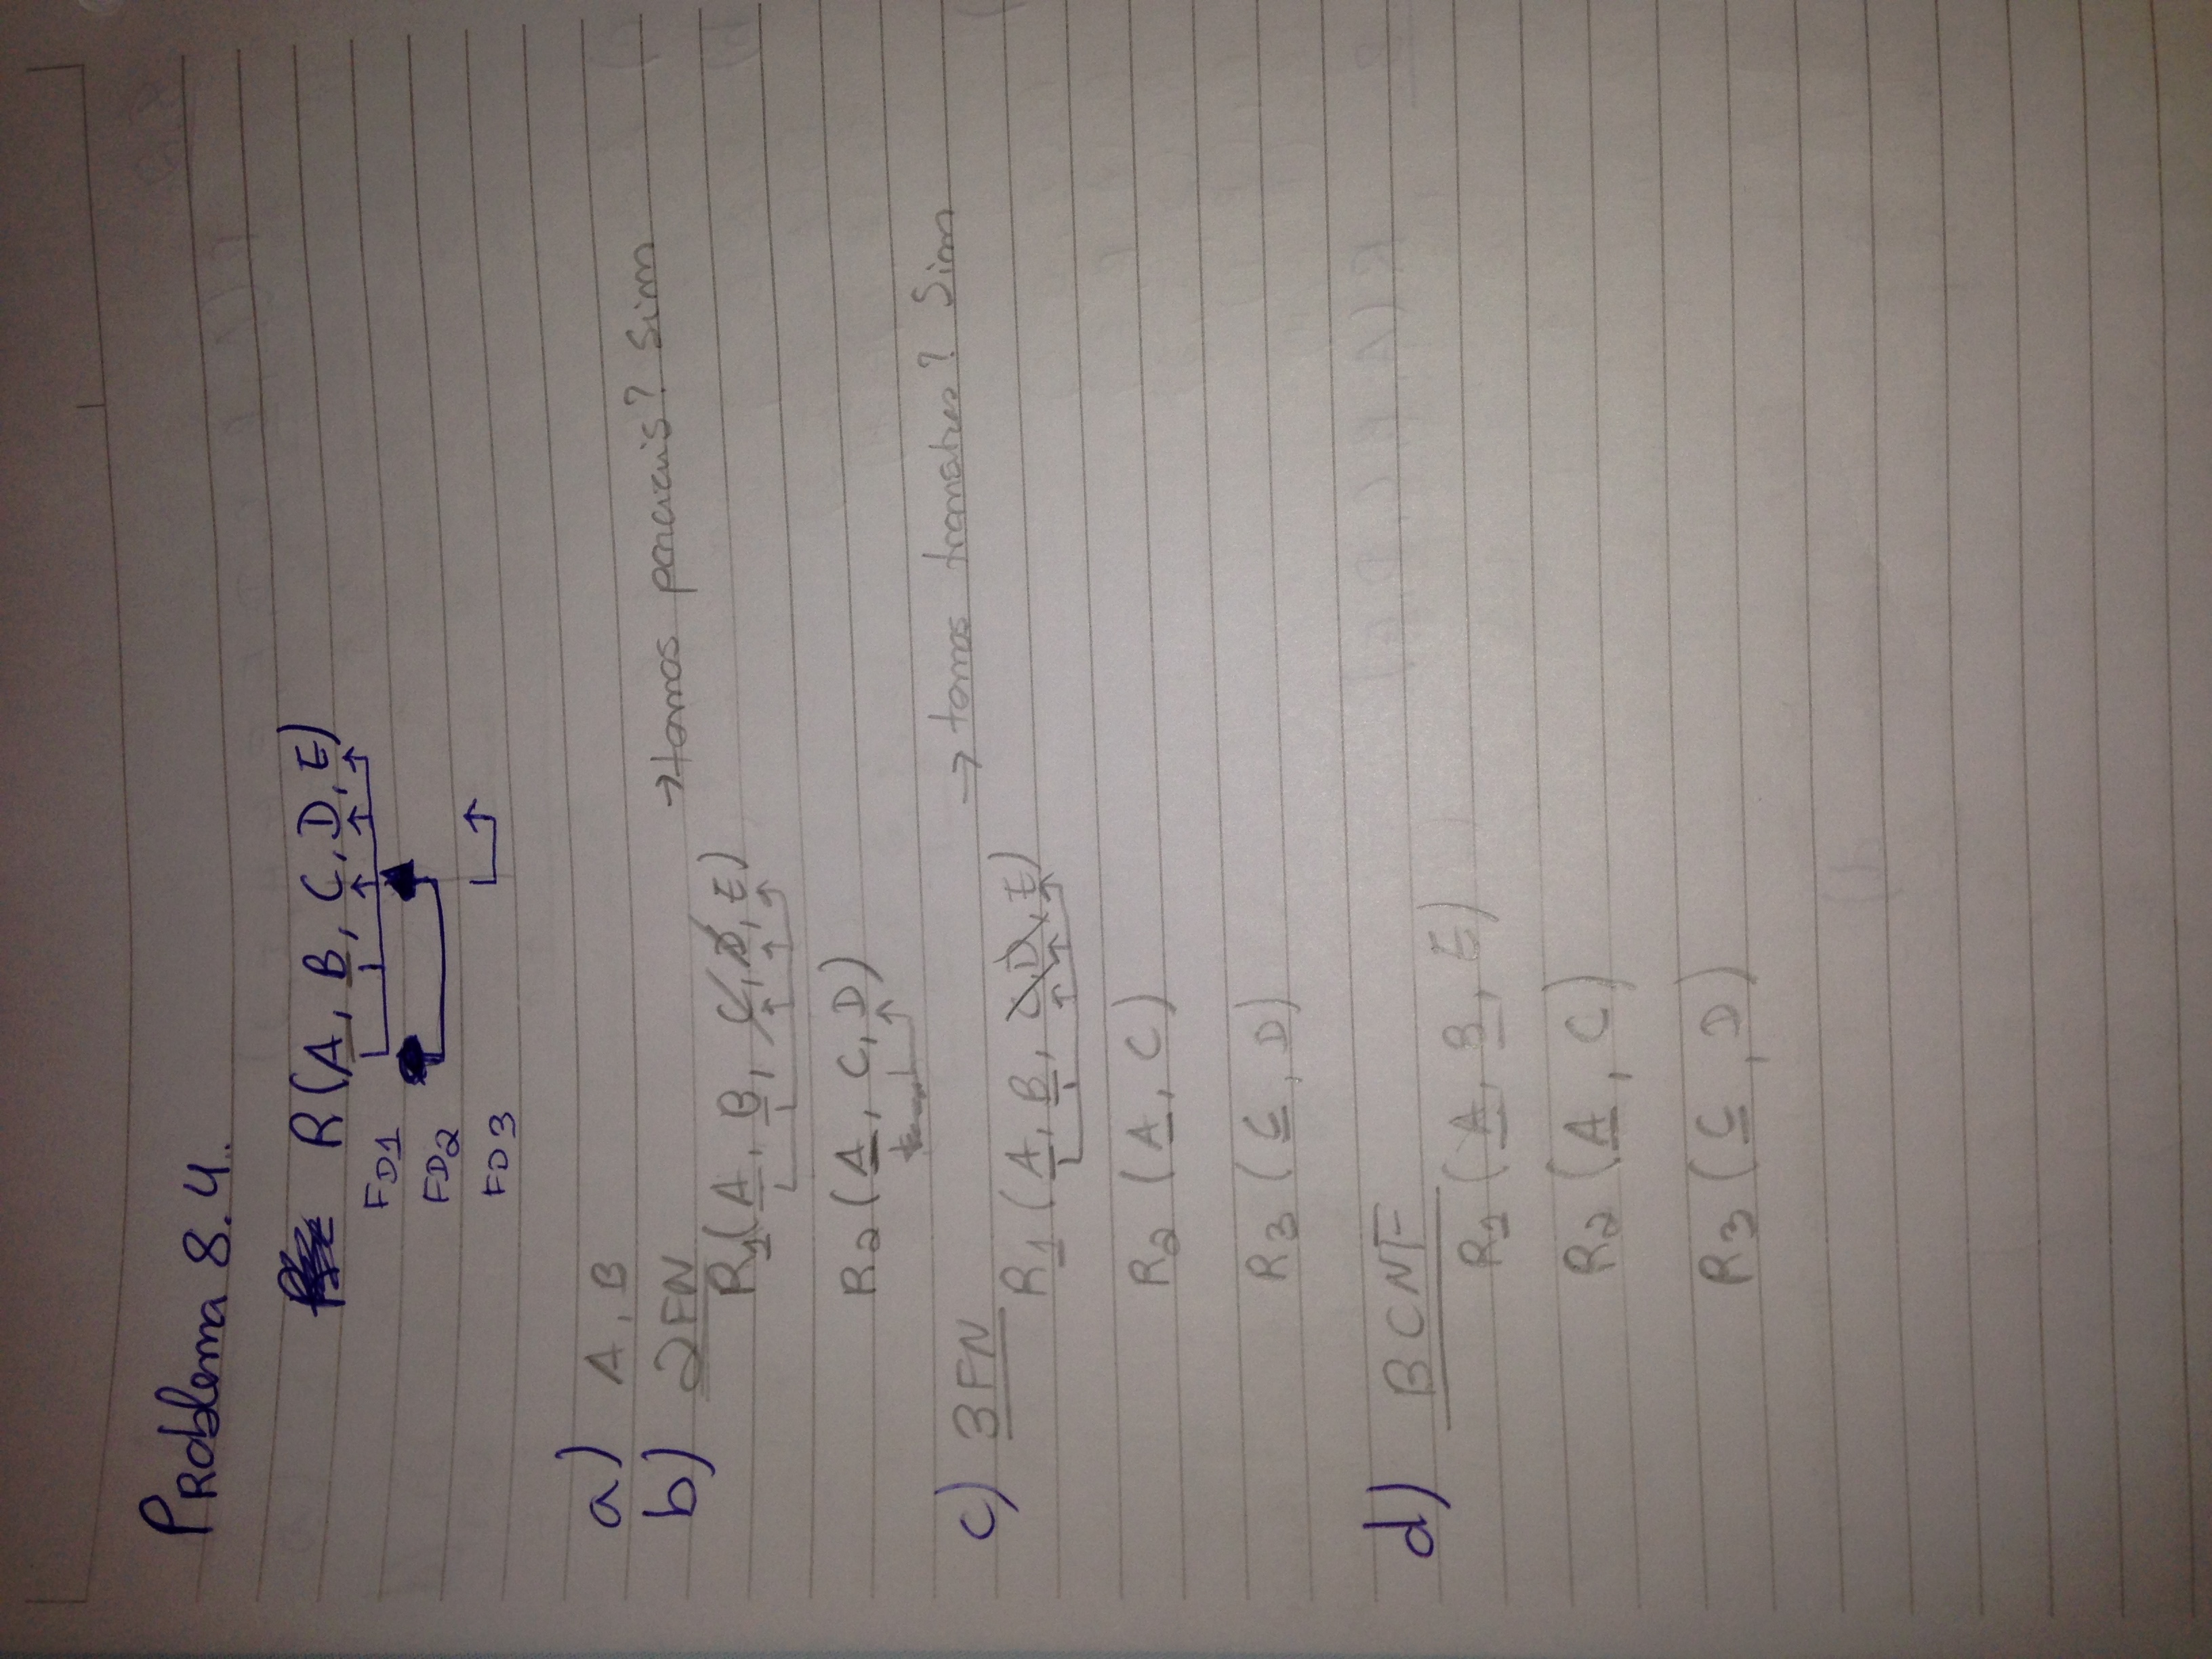 Problema 8.4.
R(A, B, C, D, E)
FD1
FD2
FD3
a) A, B
b) 2FN → temos parciais? Sim
R1(A, B, C, D, E)
R2(A, C, D)
c) 3FN → temos Sim
R1(A, B, C, D, E)
R2(A, C)
R3(C, D)
d) BCNF
R1(A, B, E)
R2(A, C)
R3(C, D)